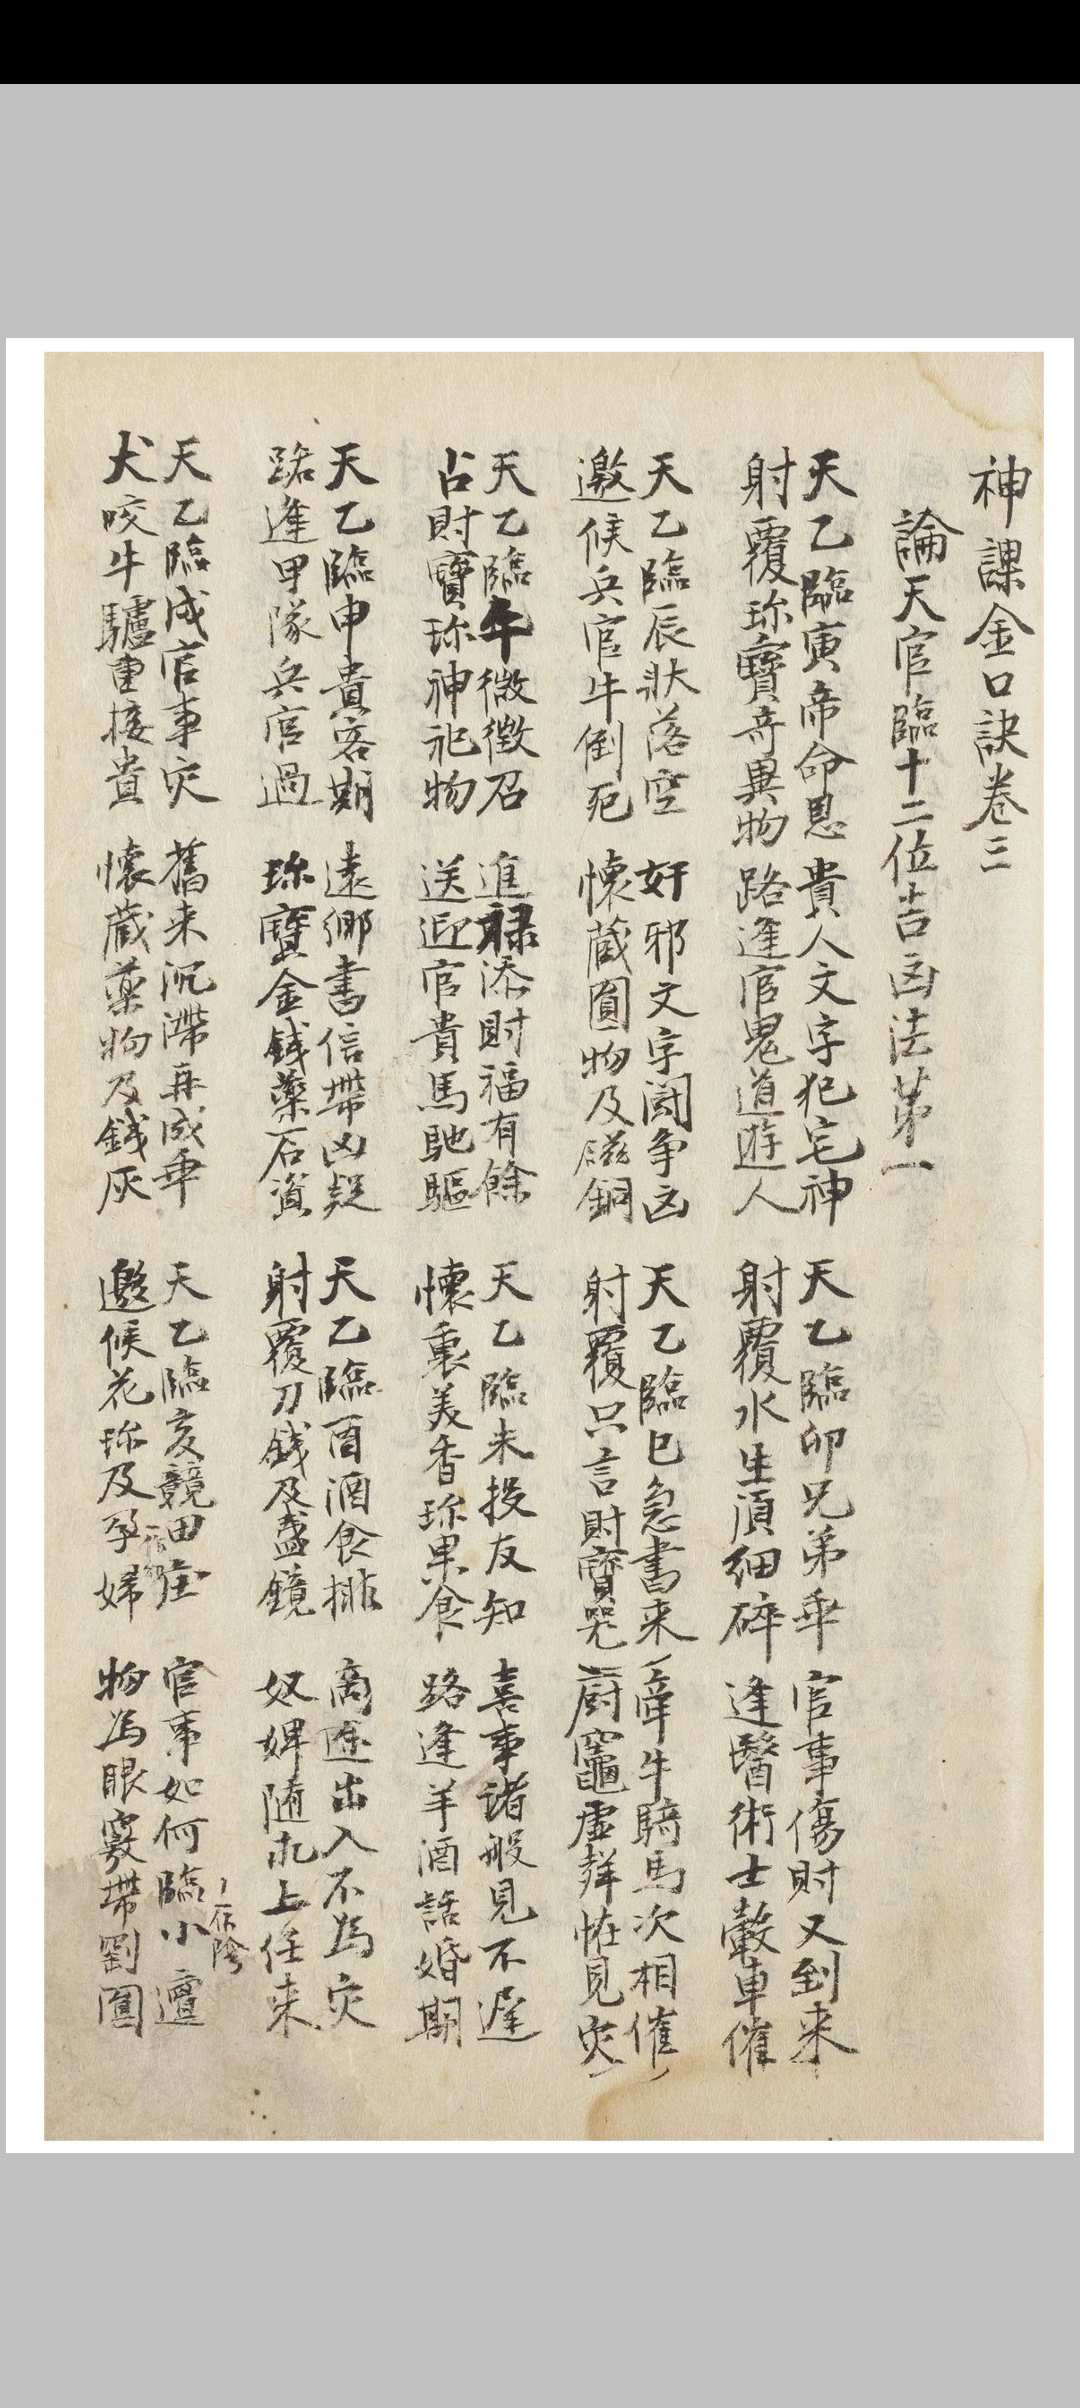 神課金口訣卷三
論天官臨十二位吉凶法第一
天乙臨寅帝命恩 貴人文字犯宅神 天乙臨卯兄弟乖 官事傷財又到来
射覆珎寶奇異物 路逢官鬼道遊人 射覆水生湏細碎 逢醫術士載車催
天乙臨辰狀落空 奸邪文字閗争凶 天乙臨巳急書来 牽牛騎馬次相催
邀候兵官牛倒死 懷藏圎物及磁銅 射覆只言財寶咒 厨竈虛鮮怪見灾
天乙臨午微徴召 進祿添財福有餘 天乙臨未投友知 喜事诸般見不遲
占財寶珎神祀物 送迎官貴馬馳驅 懷裏美香珎果食 路逢羊酒話婚期
天乙臨申貴客期 遠鄉書信帶凶疑 天乙臨酉酒食排 商途出入不為灾
路逢甲隊兵官過 珎寶金銭藥石資 射覆刀銭及盞鏡 奴婢随 上任来
天乙臨戌官事灾 舊来沉滯再成乖 天乙臨亥競田庄 官事如何臨小邅
犬咬牛驢重接貴 懷藏藥物及銭灰 邀候花珎及孕婦 物為眼竅帶割圎